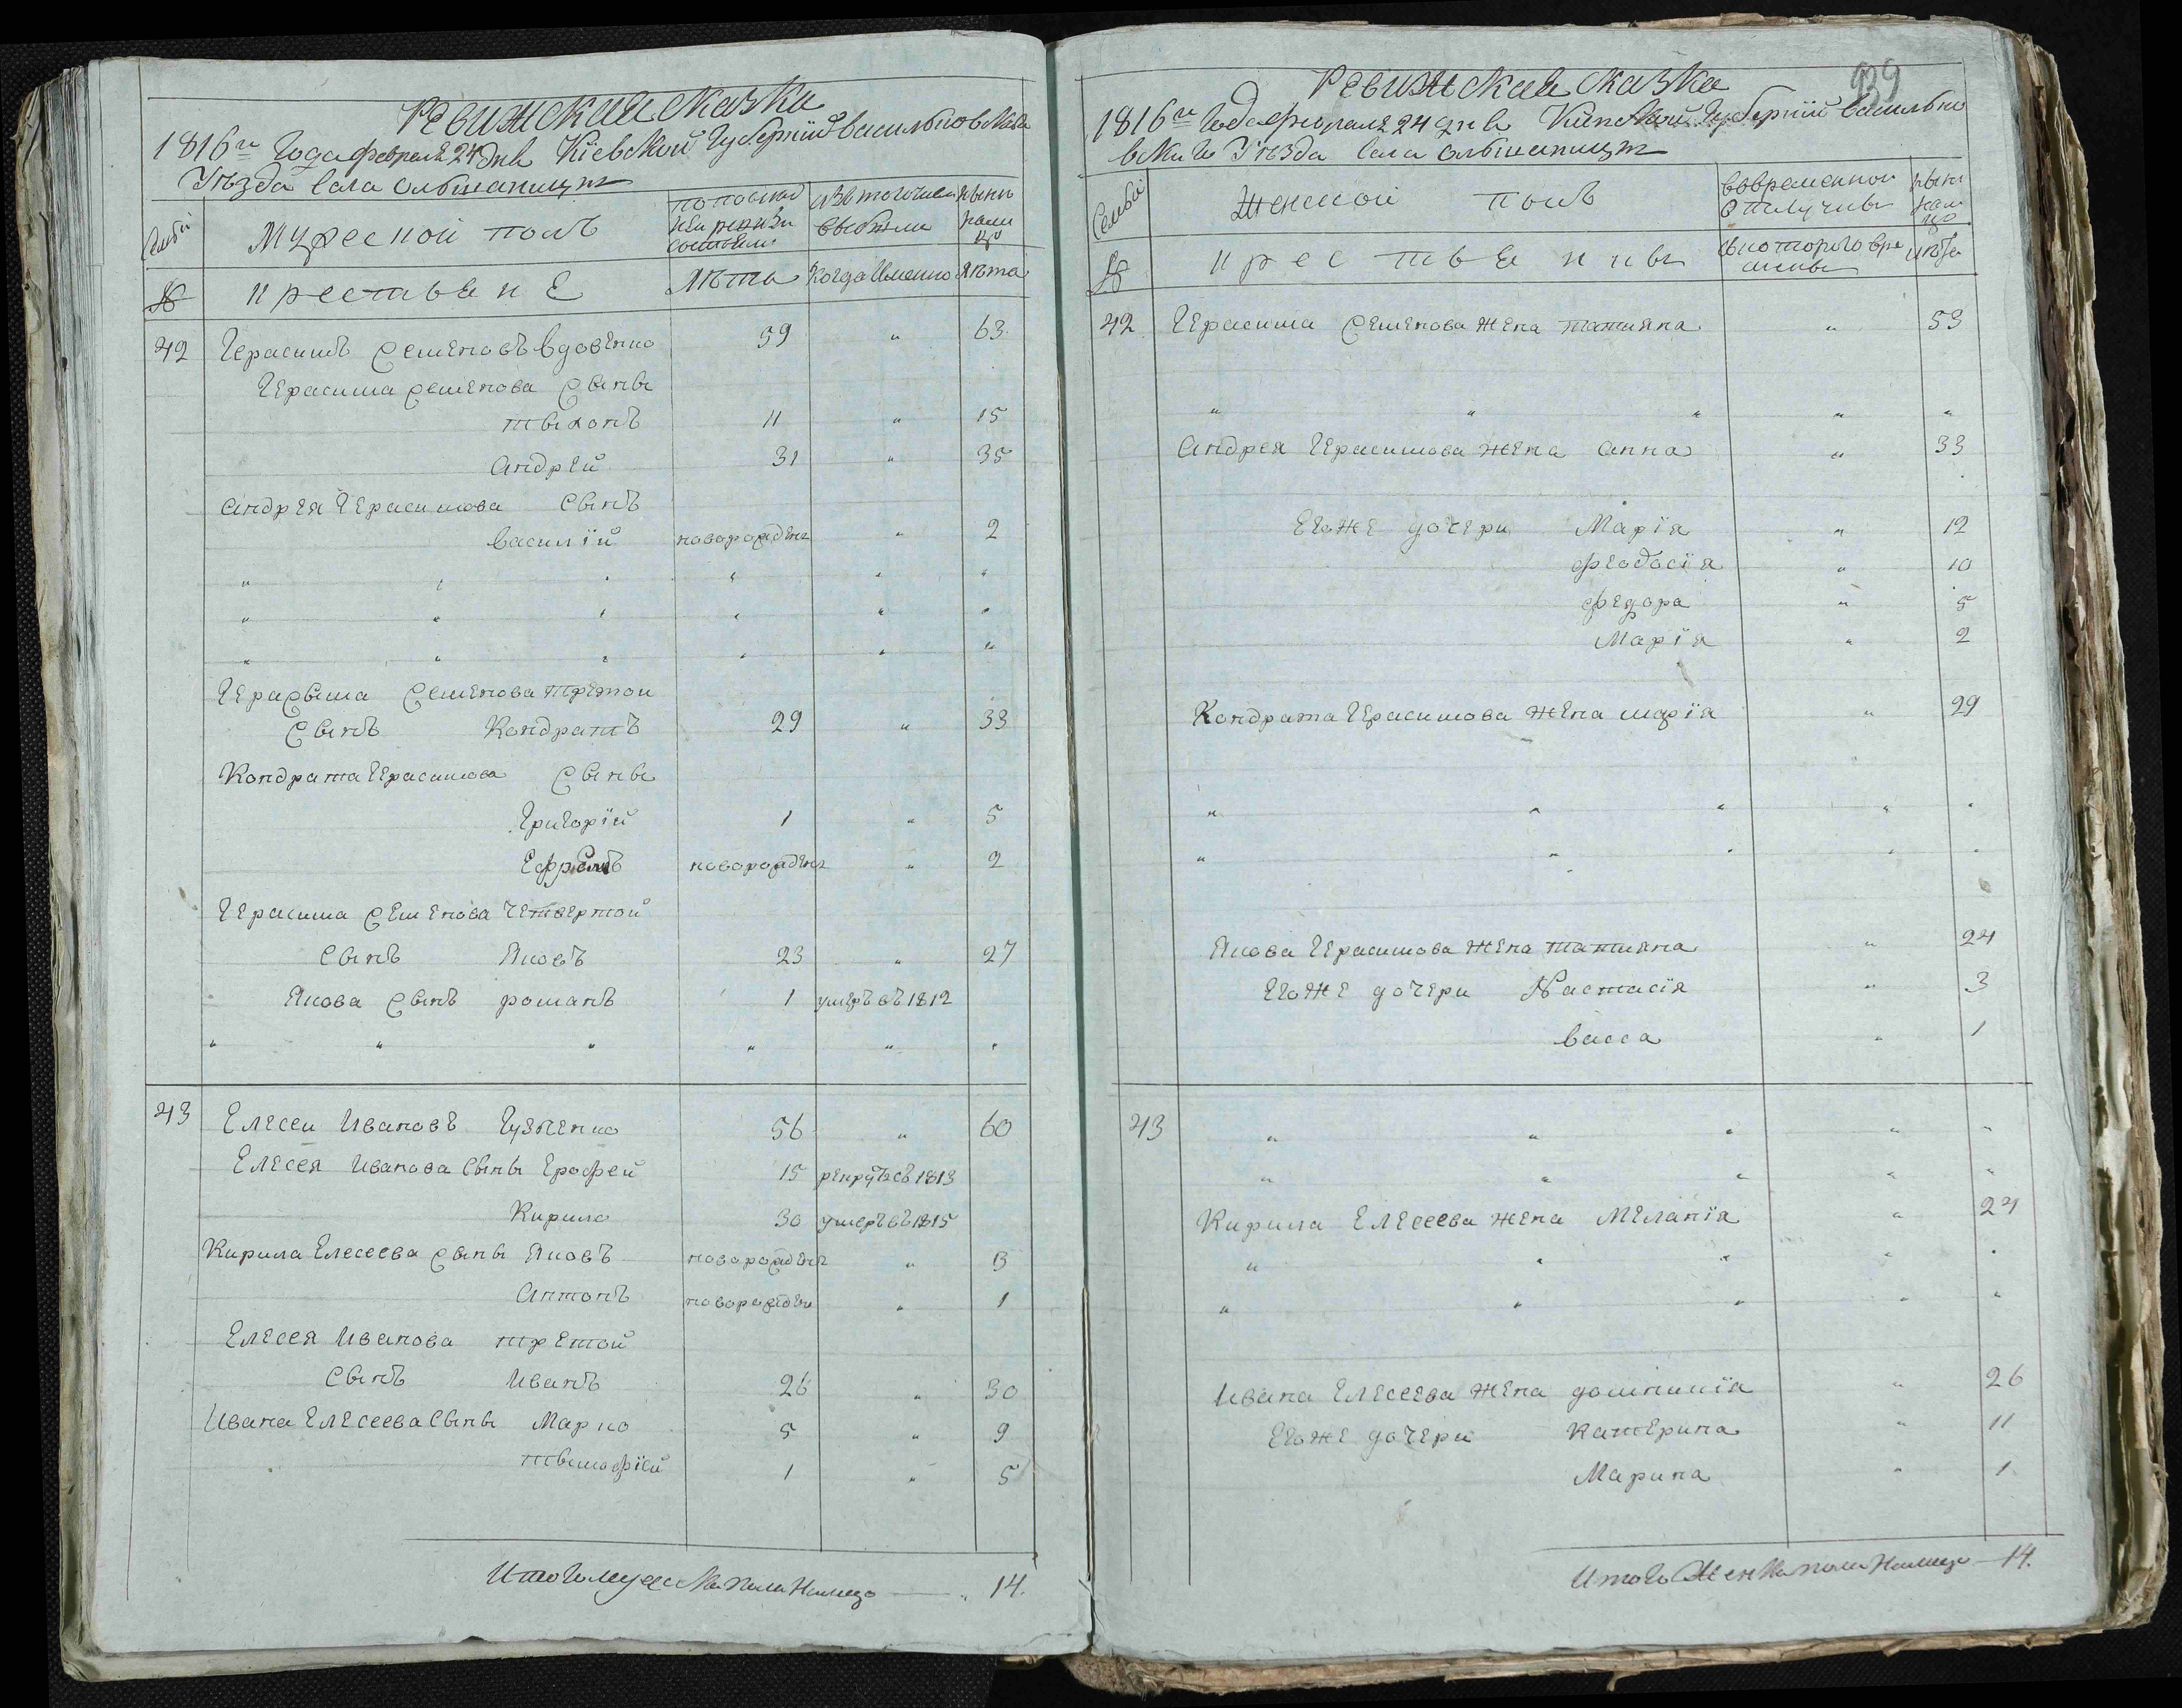 Ревижская сказка
1816го Года февраля 24 дня Кіевской Губерніи васильковскаго
Уѣзда села олбшаницы
Семьи
Мужеской полъ
по последней ревизіи состояло
изъ того числа выбыло
ныне налицо
№
крестьяне
лѣта
Когда Именно
лѣта
42 Герасимъ Семеновъ вдовенко 59 " 63
Герасима семенова Сыны
тыхонъ 11 " 15
андрей 31 " 35
андрея Герасимова Сынъ
василій новорожденъ " 2
" " " " " "
" " " " " "
" " " " " "
Герасыма Семенова третой
Сынъ Кондратъ 29 " 33
Кондрата Герасимова Сыны
Григорій 1 " 5
Ефремъ новорожденъ " 2
Герасима семенова четвертой
Сынъ Яковъ 23 " 27
Якова Сынъ романъ 1 умеръ въ 1812
" " " " " "
43 Елесеи Ивановъ Гузпенко 56 " 60
Елесея Иванова Сыны Ерофей 15 рекрутъ съ 1813
Кирило 30 умеръ въ 1815
Кирила Елесеева сыны Яковъ новорожденъ " 3
Антонъ новорожден " 1
Елесея Иванова третой
Сынъ Иванъ 26 " 30
Ивана Елесеева Сыны Марко 5 " 9
тымофій 1 " 5
Итого мужеска пола Налицо — 14.
139
Ревижская сказка
1816го Года февраля 24 дня Кіевской Губерніи василько
вскаго Уѣзда села олбшаницы
Семьи
Женской полъ
во временной отлучкѣ
ныне налицо
№
крестьянки
съ котораго времены
лѣта
42 Герасима Семенова жена татияна " 53
" " " " "
андрея Герасимова жена анна " 33
Егоже дочери Марія " 12
феодосія " 10
федора " 5
Марія " 2
Кондрата Герасимова жена марія " 29
" " " " "
" " " " "
Якова Герасимова жена татияна " 24
Егоже дочери Настасія " 3
васса " 1
43 " " " " "
" " " " "
Кирила Елесеева жена Меланія " 24
" " " " "
" " " " "
Ивана Елесеева жена доминикія " 26
Егоже дочери Катерина " 11
Марина " 1
Итого Женска пола Налицо — 14.